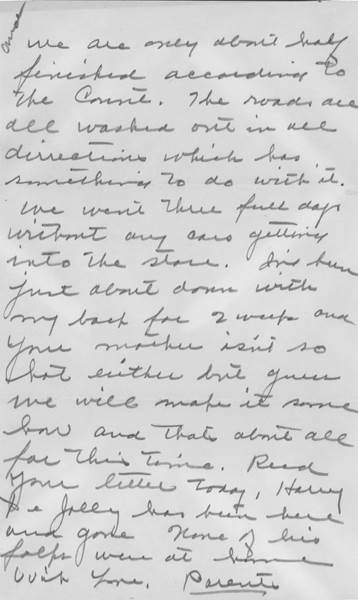 we are only about half
finished according to
the Count. The roads are
all washed out in all
dirrections which has
something to do with it.
We went three full days
without any cars getting
into the store. I've been
just about down with
my back for 2 weeks and
your mother isn't so
hot either but guess
we will make it some
how and thats about all
for this time. Recd
your letter today, Harry
Jolly has been here
and gone None of his
folks were at home
With Love, Parents